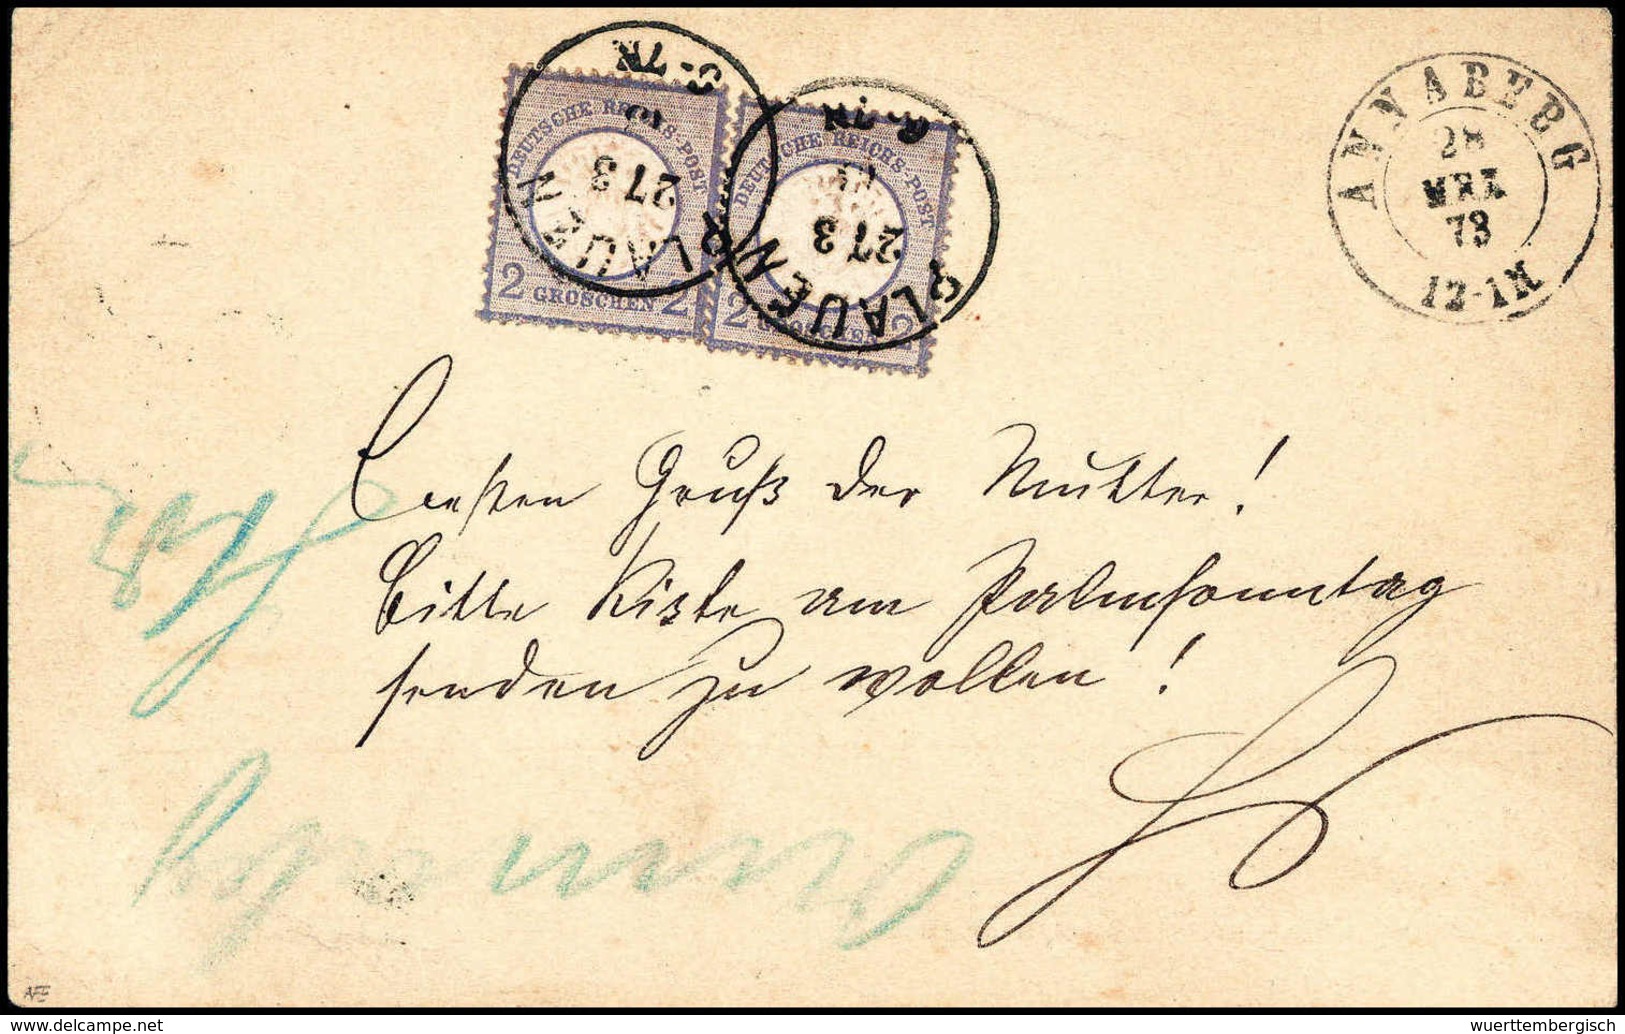 DEUTSCHE REICHS-POST
2 GROSCHEN 2
PLAUEN
27 3
6-7N
DEUTSCHE REICHS-POST
2 GROSCHEN 2
PLAUEN
27 3
6-7N
ANNABERG
28
MRZ
73
12-1N
Besten Gruß der Mutter!
Bitte Kiste am Palmsonntag
senden zu wollen!
AFE
www.delcampe.net
wuerttembergisch